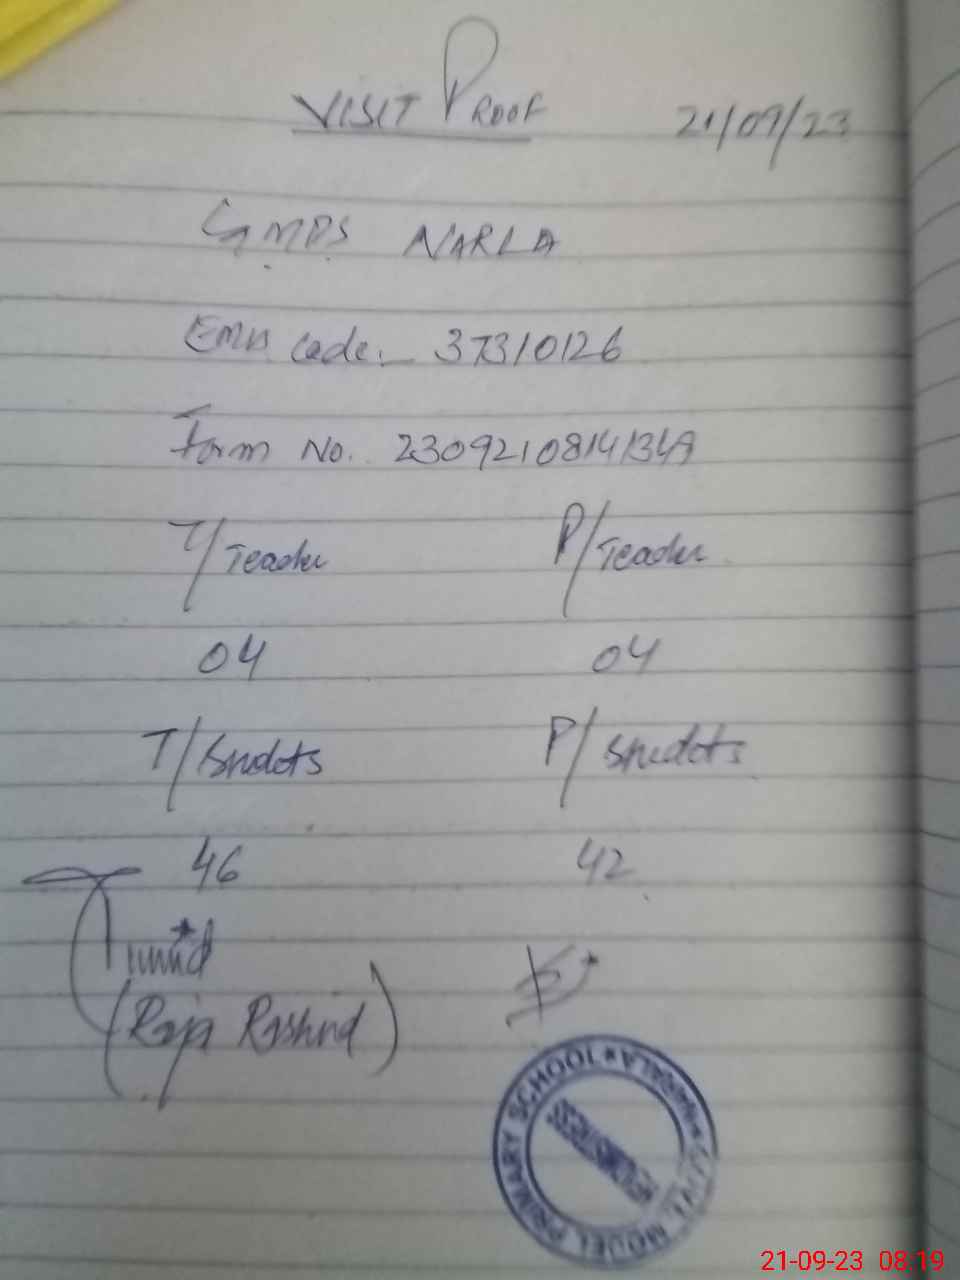 VISIT PROOF 21/09/23
GMPS NARLA
EMIS Code:- 37310126
Form No. 23092108141349
T/Teacher P/Teacher
04 04
T/Students P/Students
46 42
(Raja Rashid)
MODEL PRIMARY SCHOOL ★
21-09-23 08:19